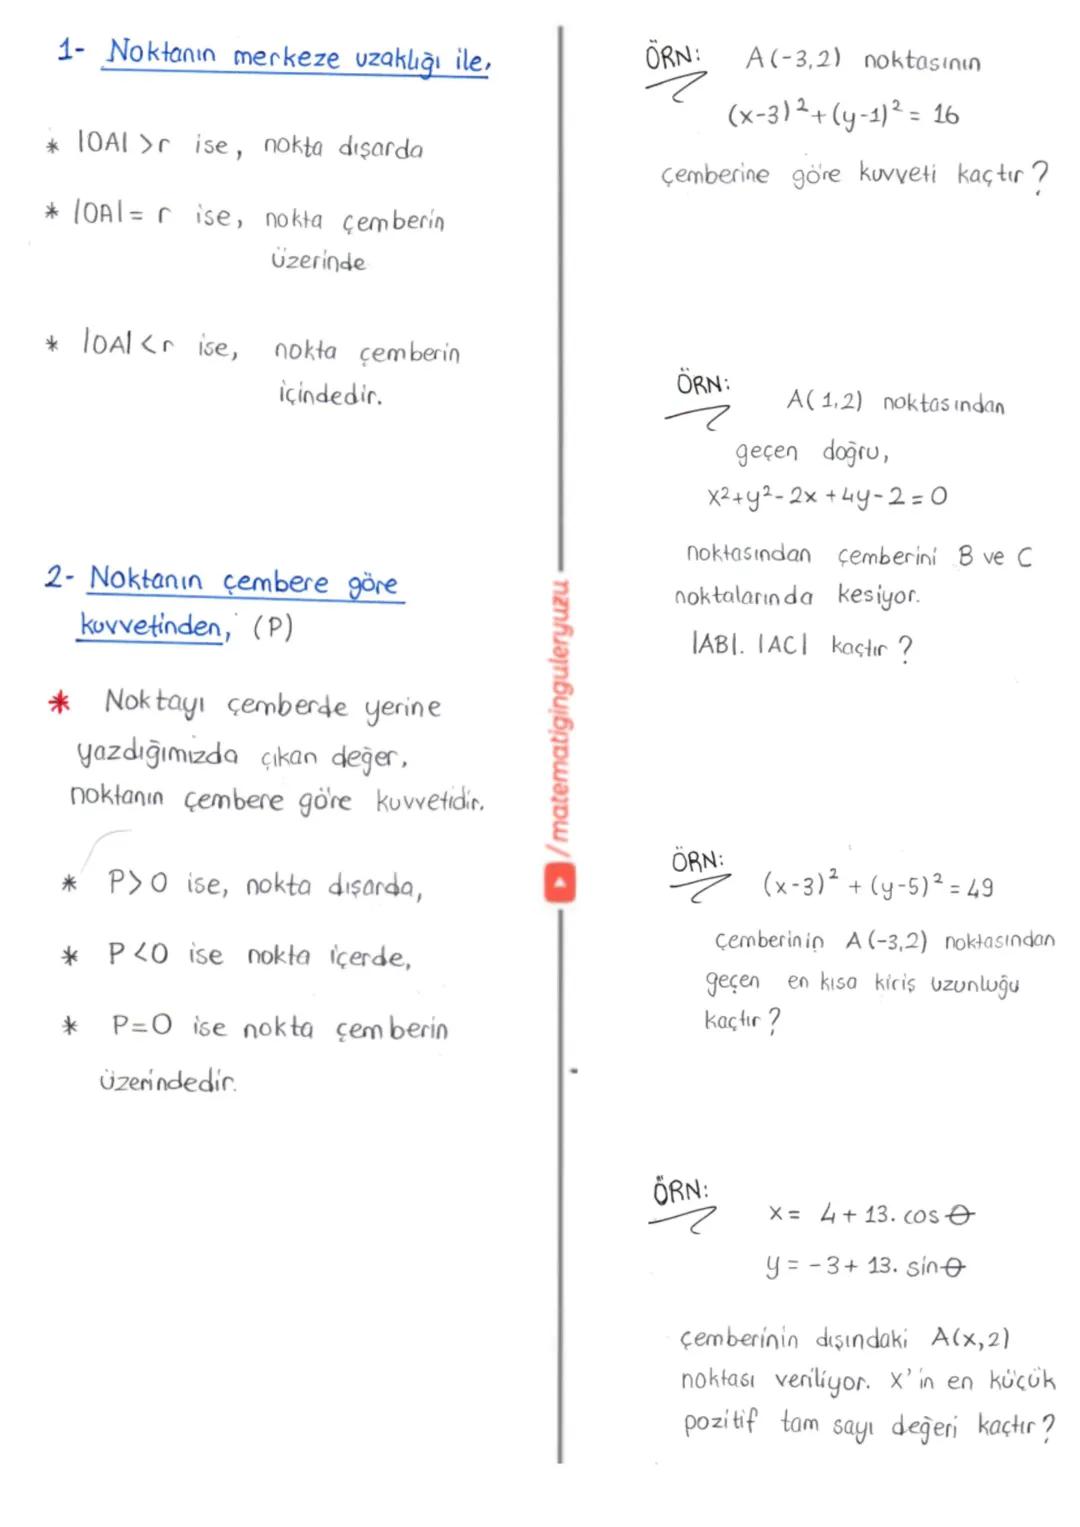 1- Noktanın merkeze uzaklığı ile,
* |OA| >r ise, nokta dışarda
* |OA| = r ise, nokta çemberin
üzerinde
* |OA| <r ise, nokta çemberin
içindedir.
2- Noktanın çembere göre
kuvvetinden, (P)
* Noktayı çemberde yerine
yazdığımızda çıkan değer,
noktanın çembere göre kuvvetidir.
* P>0 ise, nokta dışarda,
* P<0 ise nokta içerde,
* P=0 ise nokta çemberin
üzerindedir.
/matematiginguleryuzu
ÖRN: A(-3,2) noktasının
(x-3)²+(y-1)² = 16
çemberine göre kuvveti kaçtır?
ÖRN: A(1,2) noktasından
geçen doğru,
x²+y²-2x+4y-2=0
noktasından çemberini B ve C
noktalarında kesiyor.
|AB|. |AC| kaçtır?
ÖRN: (x-3)² + (y-5)² = 49
çemberinin A(-3,2) noktasından
geçen en kısa kiriş uzunluğu
kaçtır?
ÖRN: x = 4+ 13. cos θ
y = -3+ 13. sin θ
çemberinin dışındaki A(x,2)
noktası veriliyor. x'in en küçük
pozitif tam sayı değeri kaçtır?